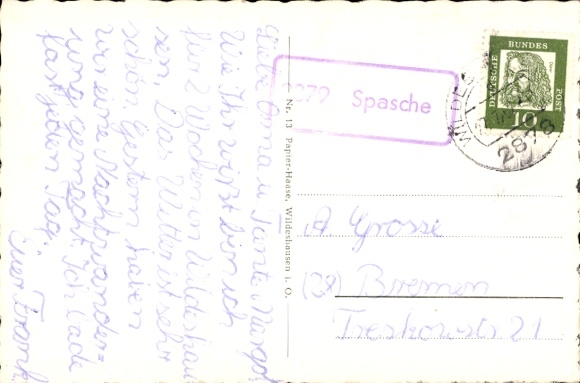 Liebe Oma u. Tante Margot
Wie Ihr wißt bin ich
für 2 Wochen in Wildeshau
sen. Das Wetter ist sehr
schön. Gestern haben
wir eine Nachtwander=
rung gemacht. Ich bade
fast jeden Tag.
Euer Frank
Nr. 13 Papier-Haase, Wildeshausen i. O.
2879 Spasche
DEUTSCHE
BUNDES
POST
10
2878
A Grosse
Bremen
Treskowstr 21